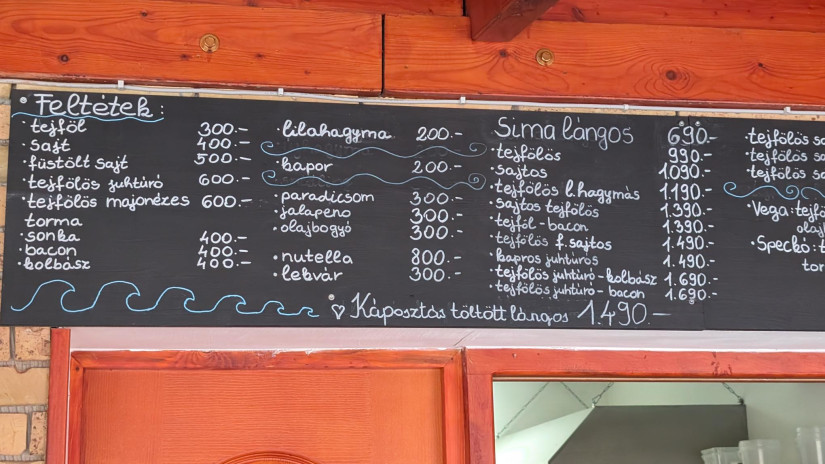 Feltétek:
• tejföl 300.-
• sajt 400.-
• füstölt sajt 500.-
• tejfölös juhtúró 600.-
• tejfölös majonézes 600.-
torma
• sonka 400.-
• bacon 400.-
• kolbász 400.-
• lilahagyma 200.-
• kapor 200.-
• paradicsom 300.-
• jalapeno 300.-
• olajbogyó 300.-
• nutella 800.-
• lekvár 300.-
Sima lángos 690.-
• tejfölös 990.-
• sajtos 1090.-
• tejfölös l.hagymás 1.190.-
• sajtos tejfölös 1.390.-
• tejföl-bacon 1.390.-
• tejfölös f.sajtos 1.490.-
• kapros juhtúrós 1.490.-
• tejfölös juhtúró-kolbász 1.690.-
• tejfölös juhtúró-bacon 1.690.-
Káposztás töltött lángos 1.490.-
• tejfölös
• tejfölös
• tejfölös
• Vega:
• Speckó: